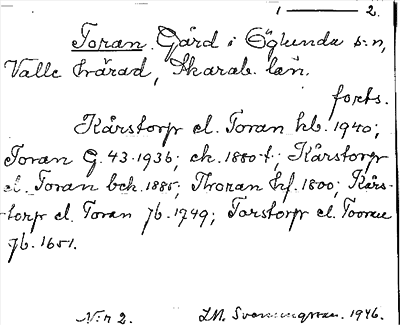 1 — 2.
Toran. Gård i Öglunda s:n,
Valle härad, Skarab. län.
forts.
Kårstorp el. Toran hb. 1940;
Toran G. 43. 1936; ek. 1880-t; Kårstorp
el. Toran bck. 1885; Thoran hf. 1800; Kårs-
torp el. Toran jb. 1749; Torstorp el. Toorau
jb. 1651.
N:r 2. I.M. Svenningsson. 1946.